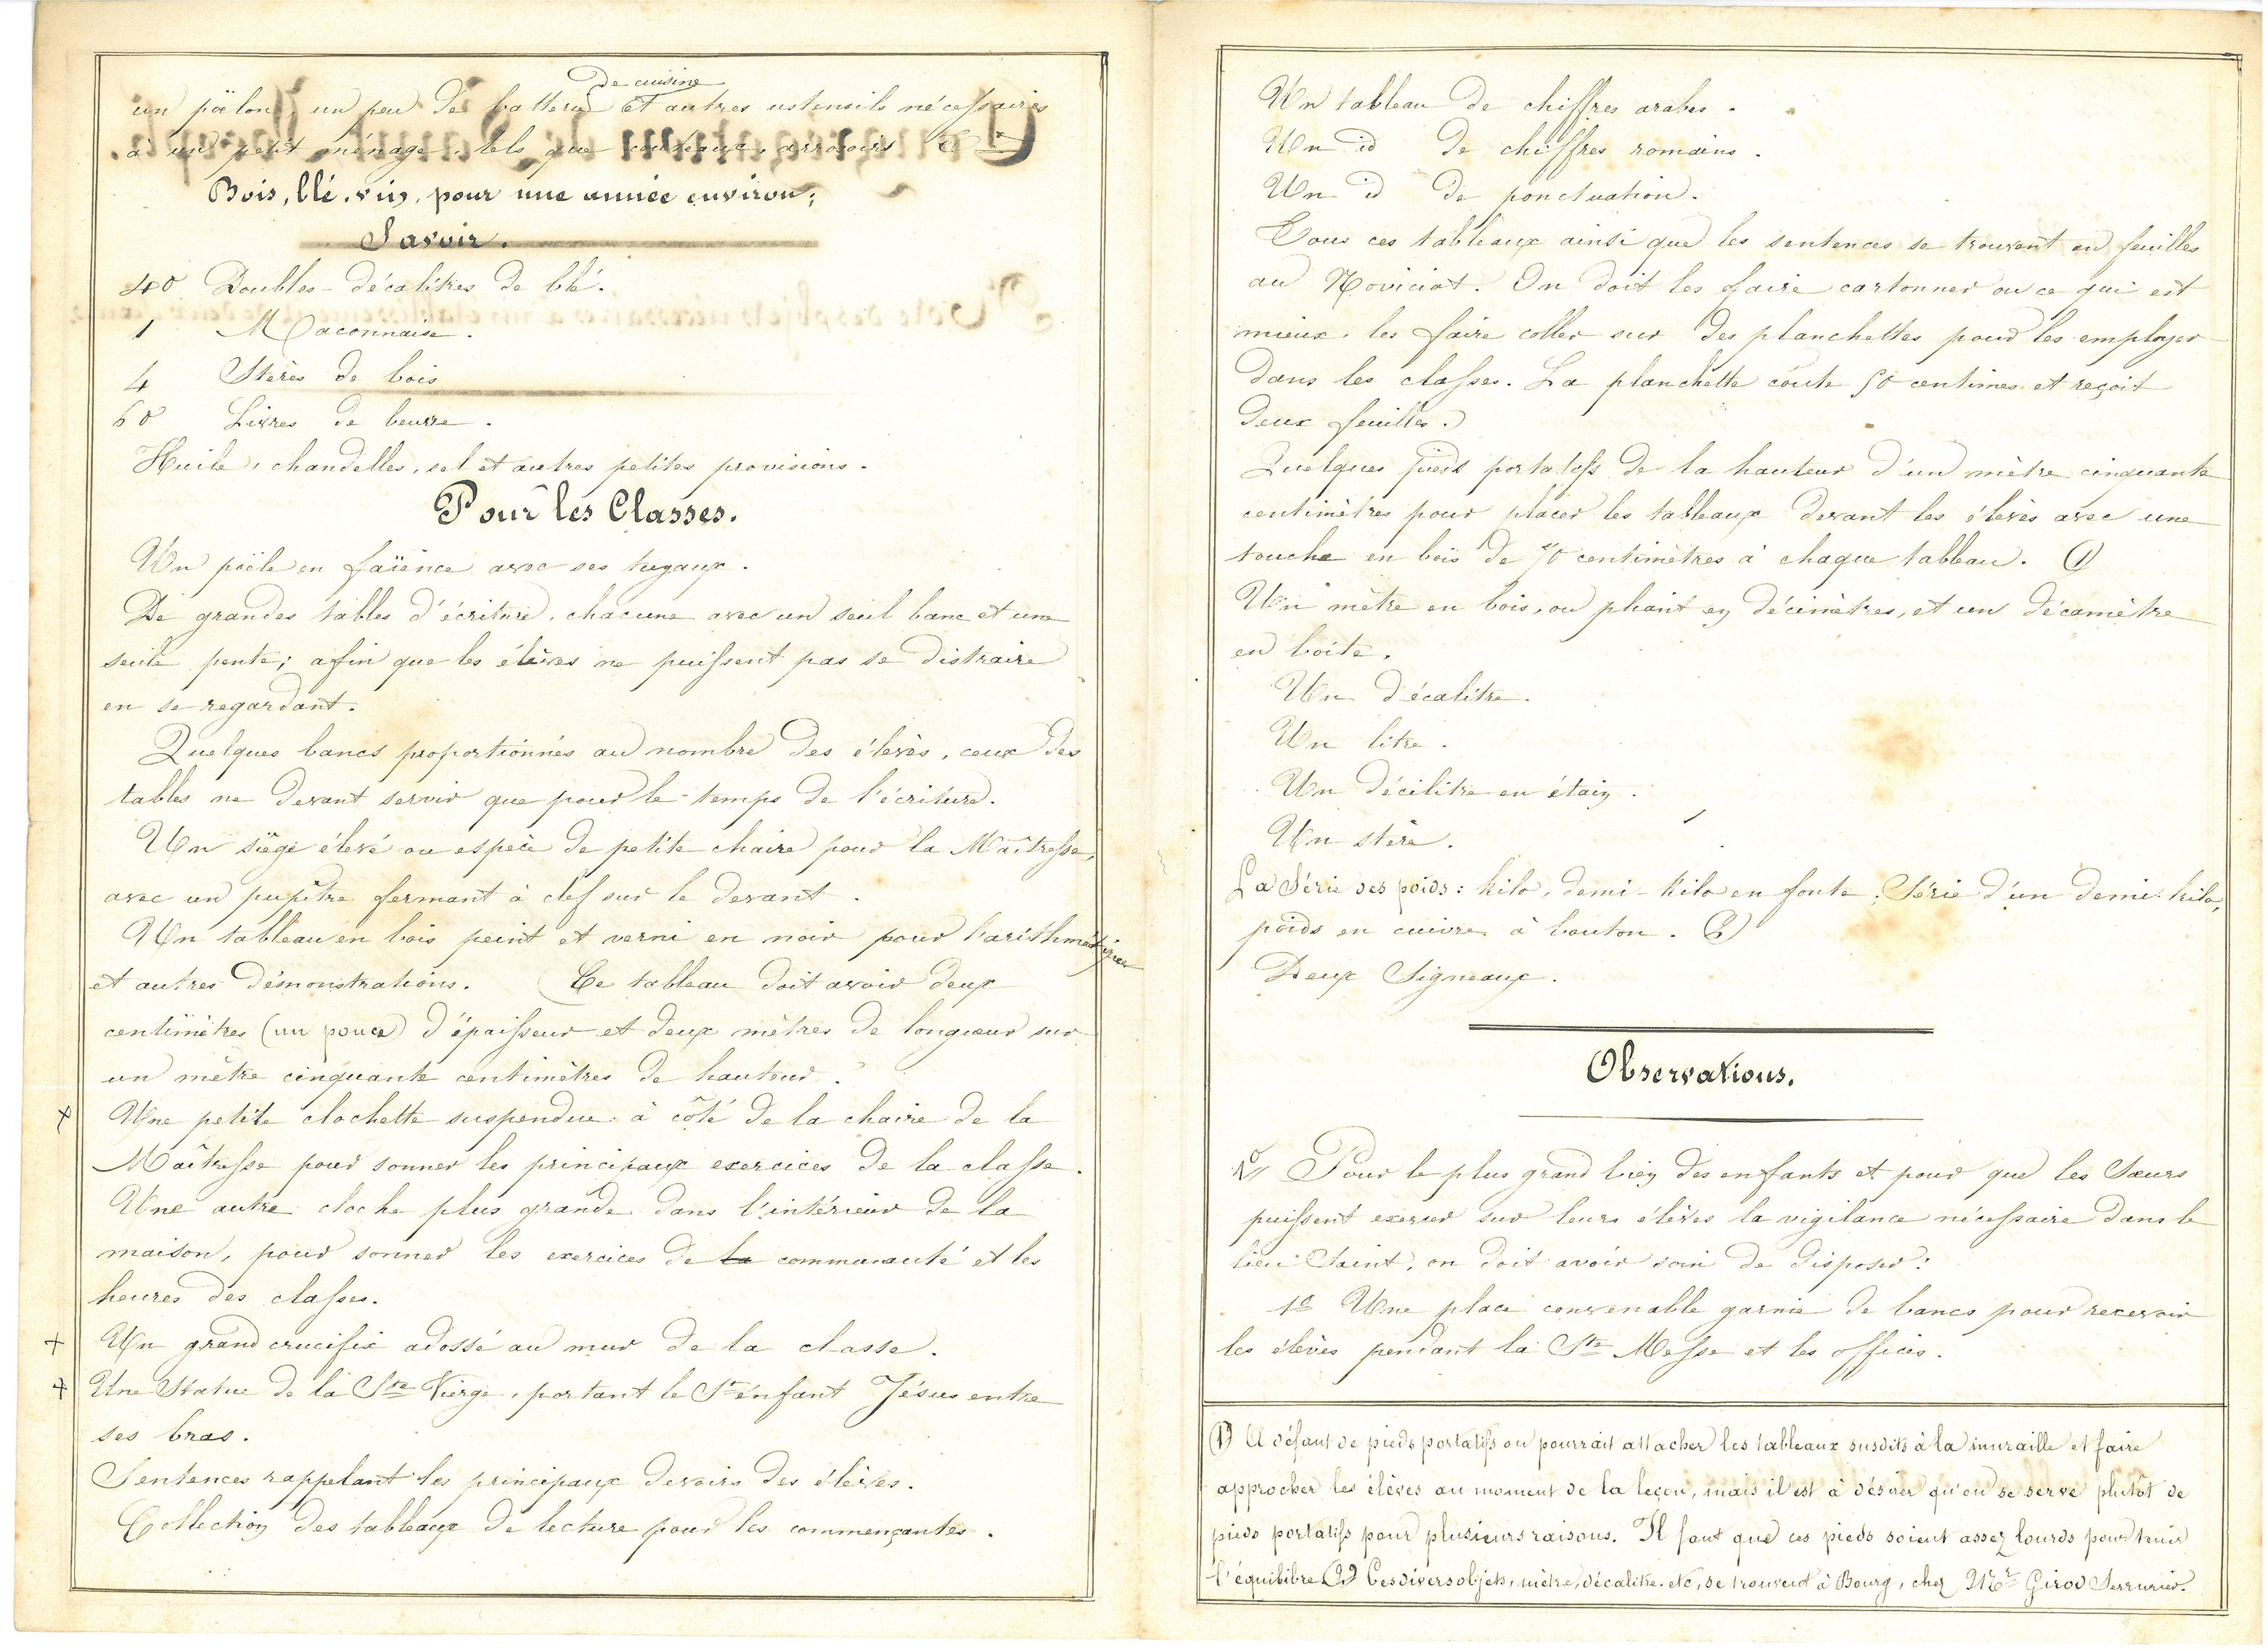 de cuisine
un pöelon, un peu de batterie et autres ustensils nécessaires
à un petit ménage, tels que couteaux, arrosoirs &
Bois, blé, vin, pour une année environ;
Savoir.
40 Doubles-décalitres de blé.
1 Maconnaise.
4 Stères de bois
60 Livres de beurre.
Huile, chandelles, sel et autres petites provisions.
Pour les Classes.
Un poële en faïence avec ses tuyaux.
De grandes tables d'écriture, chacune avec un seul banc et une
seule pente; afin que les élèves ne puissent pas se distraire
en se regardant.
Quelques bancs proportionnés au nombre des élèves, ceux des
tables ne devant servir que pour le temps de l'écriture.
Un siège élevé ou espèce de petite chaire pour la Maîtresse,
avec un pupitre fermant à clef sur le devant.
Un tableau en bois peint et verni en noir pour l'arithmétique
et autres démonstrations. Ce tableau doit avoir deux
centimètres (un pouce) d'épaisseur et deux mètres de longueur sur
un mètre cinquante centimètres de hauteur.
x Une petite clochette suspendue à côté de la chaire de la
Maîtresse pour sonner les principaux exercices de la classe.
Une autre cloche plus grande dans l'intérieur de la
maison, pour sonner les exercices de la communauté et les
heures des classes.
+ Un grand crucifix adossé au mur de la classe.
+ Une Statue de la Ste Vierge, portant le St enfant Jésus entre
ses bras.
Sentences rappelant les principaux devoirs des élèves.
Collection des tableaux de lecture pour les commençantes.
Un tableau de chiffres arabes.
Un id de chiffres romains.
Un id de ponctuation.
Tous ces tableaux ainsi que les sentences se trouvent en feuilles
au Noviciat. On doit les faire cartonner ou ce qui est
mieux, les faire coller sur des planchettes pour les employer
dans les classes. La planchette coûte 50 centimes et reçoit
deux feuilles.
Quelques pieds portatifs de la hauteur d'un mètre cinquante
centimètres pour placer les tableaux devant les élèves avec une
touche en bois de 70 centimètres à chaque tableau. (1)
Un mètre en bois, ou pliant en décimètres, et un décamètre
en boite.
Un décalitre.
Un litre.
Un décilitre en étain.
Un stère.
La Série des poids: kilo, demi-kilo en fonte, Série d'un demi-kilo,
poids en cuivre à bouton. (2)
Deux Signeaux.
Observations.
No Pour le plus grand bien des enfants et pour que les Sœurs
puissent exercer sur leurs élèves la vigilance nécessaire dans le
lieu Saint, on doit avoir soin de disposer:
1o Une place convenable garnie de bancs pour recevoir
les élèves pendant la Ste Messe et les offices.
(1) A défaut de pieds portatifs on pourrait attacher les tableaux susdits à la muraille et faire
approcher les élèves au moment de la leçon, mais il est à désirer qu'on se serve plutôt de
pieds portatifs pour plusieurs raisons. Il faut que ces pieds soient assez lourds pour tenir
l'équilibre (2) Ces divers objets, mètre, décalitre, etc, se trouvent à Bourg, chez Mr Girod Serrurier.